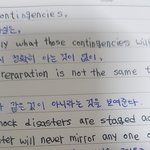 contingencies,
ly what those contingencies will
정확히 아는 것이 없이,
reparation is not the same t
같은것이 아니라는 것을 보여준다.
mock disasters are staged ac
ter will never mirror any one o